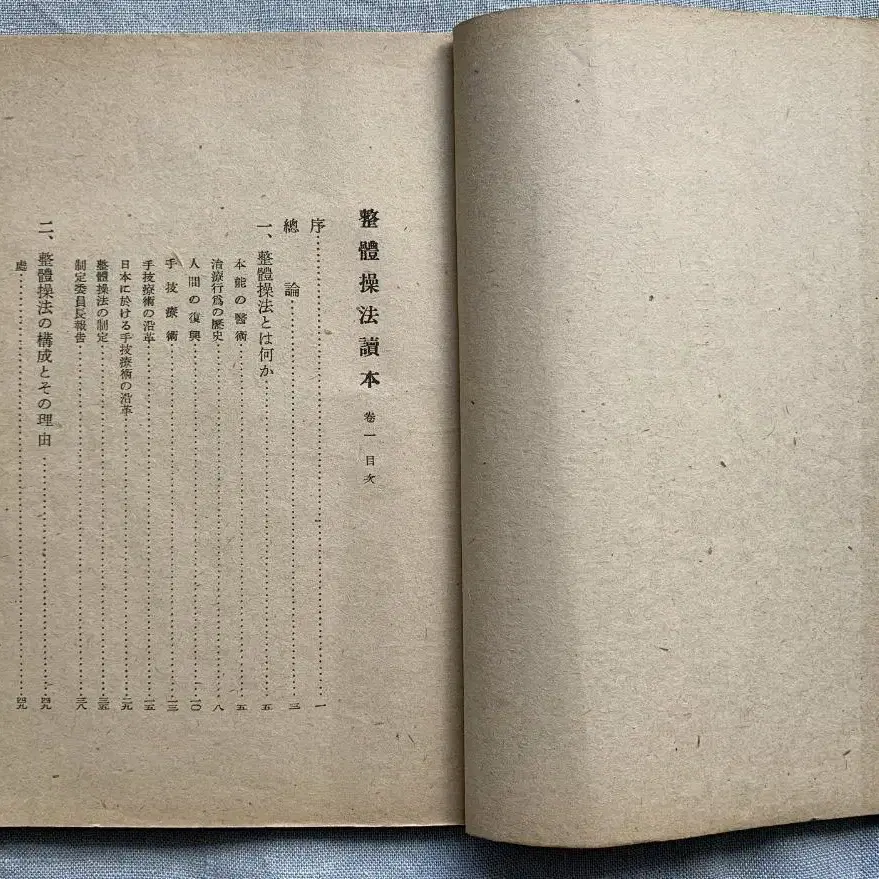 整體操法讀本 卷一 目次
序……一
總論……三
一、整體操法とは何か……五
本能の醫術……五
治療行爲の歷史……八
人間の復興……一〇
手技療術……一三
手技療術の沿革……一五
日本に於ける手技療術の沿革……二九
整體操法の制定……三五
制定委員長報告……三八
二、整體操法の構成とその理由……四九
處……四九